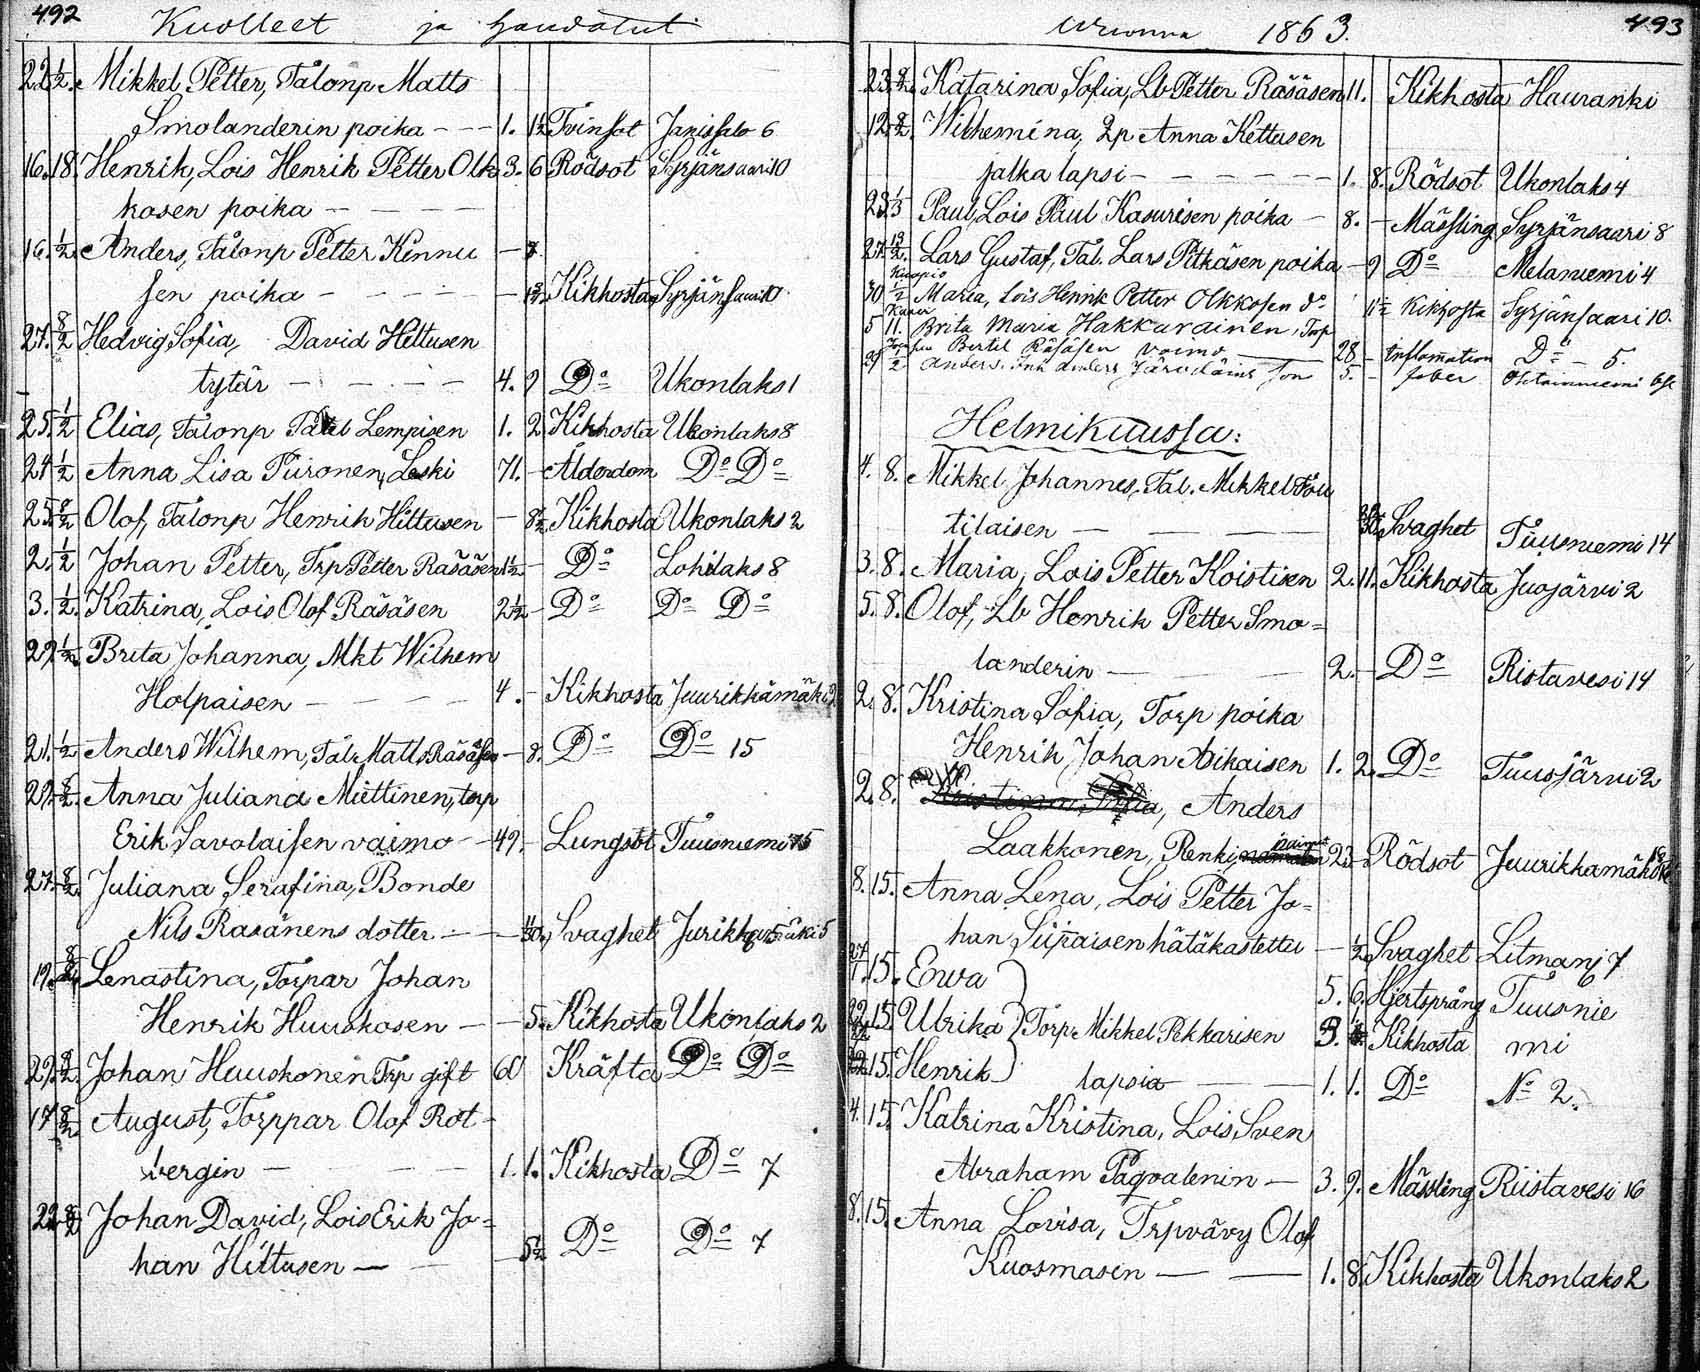 492 Kuolleet ja haudatut
22. 1/2. Mikkel Petter, Talonp Matts
Smolanderin poika - - - 1. 1 1/2 Tvinsot Janissalo 6
16. 18. Henrik, Lois Henrik Petter Olk- 3. 6 Rödsot Syrjänsaari 10
kosen poika - - - -
16. 1/2. Anders, Talonp Petter Kinnu - 7
sen poika - - - - Kikhosta Syrjänsaari 10
27. 8/2 Hedvig Sofia, David Hettusen
tytär - - - - 4. 9 Do Ukonlaks 1
25. 1/2 Elias, Talonp Lempisen 1. 2 Kikhosta Ukonlaks 8
24 1/2 Anna Lisa Piironen, Leski 71. - Ålderdom Do Do
25. 8/2 Olof, Talonp Henrik Hittusen - 8 1/2 Kikhosta Ukonlaks 2
2. 1/2 Johan Petter, Trp Petter Räsäsen 1 1/2 - Do Lohilaks 8
3. 1/2. Katrina, Lois Olof Räsäsen 2 1/2 - Do Do Do
29 1/2. Brita Johanna, Mkt Wilhem
Holpaisen - - - 4. - Kikhosta Juurikkamäki 9
21. 1/2 Anders Wilhem, Talr Matts Räsäsen - 8. Do Do 15
29. 8/2. Anna Juliana Miettinen, torp
Erik Savolaisen vaimo - 49. - Lungsot Tuusniemi 15
27. 8/2. Juliana Serafina, Bonde
Nils Rasänens dotter - - Svaghet Jurikkamäki 5
19. 8/2. Lenastina, Torpar Johan
Henrik Huuskosen - - 5. Kikhosta Ukonlaks 2
29. 8/2. Johan Huuskonen Trp gift 60 Kräfta Do Do
17 8/2. August, Torppar Olof Rot-
bergin - - - 1. 1. Kikhosta Do 7
22. 8/2 Johan David, Lois Erik Jo=
han Hittusen - - 5 1/2 Do Do 7
vuonna 1863. 493
23. 8/2. Katarina Sofia, Lb Petter Räsäsen 11. Kikhosta Hauranki
12. 8/2. Wilhemina, Ip Anna Kettusen
jalka lapsi - - - - - 1. 8. Rödsot Ukonlaks 4
23 1/3 Paul, Lois Paul Kasurisen poika - 8. - Mässling Syrjänsaari 8
27. 12/2. Lars Gustaf, Tal. Lars Pitkäsen poika - 9 Do Melaniemi 4
Kuopio
30 1/2 Maria, Lois Henrik Petter Olkkosen dr 1 1/2 Kikhosta Syrjänsaari 10.
5 11. Brita Maria Hakkarainen, Torp
Bertel Räsäsen vaimo 28 - Inflamation Do - 5.
29 1/2 Anders. Inh Anders Järveläins son 5. - feber
Helmikuussa:
4. 8. Mikkel Johannes, Tal. Mikkel Tou
tilaisen - - - Svaghet Tuusniemi 14
3. 8. Maria, Lois Petter Koistisen 2. 11. Kikhosta Juojärvi 2
5. 8. Olof, Lb Henrik Petter Smo=
landerin - - - 2. - Do Ristavesi 14
2. 8. Kristina Sofia, Torp poika
Henrik Johan Aikaisen 1. 2. Do Tuusjärvi 2
2. 8. Kristina Sofia, Anders
Laakkonen, Renki, naimat 23. - Rödsot Juurikkamäki
8. 15. Anna Lena, Lois Petter Jo=
han Siipaisen hätäkastettu - 1/2 Svaghet Litmanj 7
27/1. 15. Ewa 5. 6. Hjertsprång Tuusnie
22 15. Ulrika } Torp. Mikkel Pekkarisen 3. Kikhosta mi
15. Henrik lapsia - - 1. 1. Do No 2.
4. 15. Katrina Kristina, Lois, Sven
Abraham Paqvalenin - 3. 9. Mässling Riistavesi 16
8. 15. Anna Lovisa, Trpvävy Olof
Kuosmasin - - 1. 8. Kikhosta Ukonlaks 2